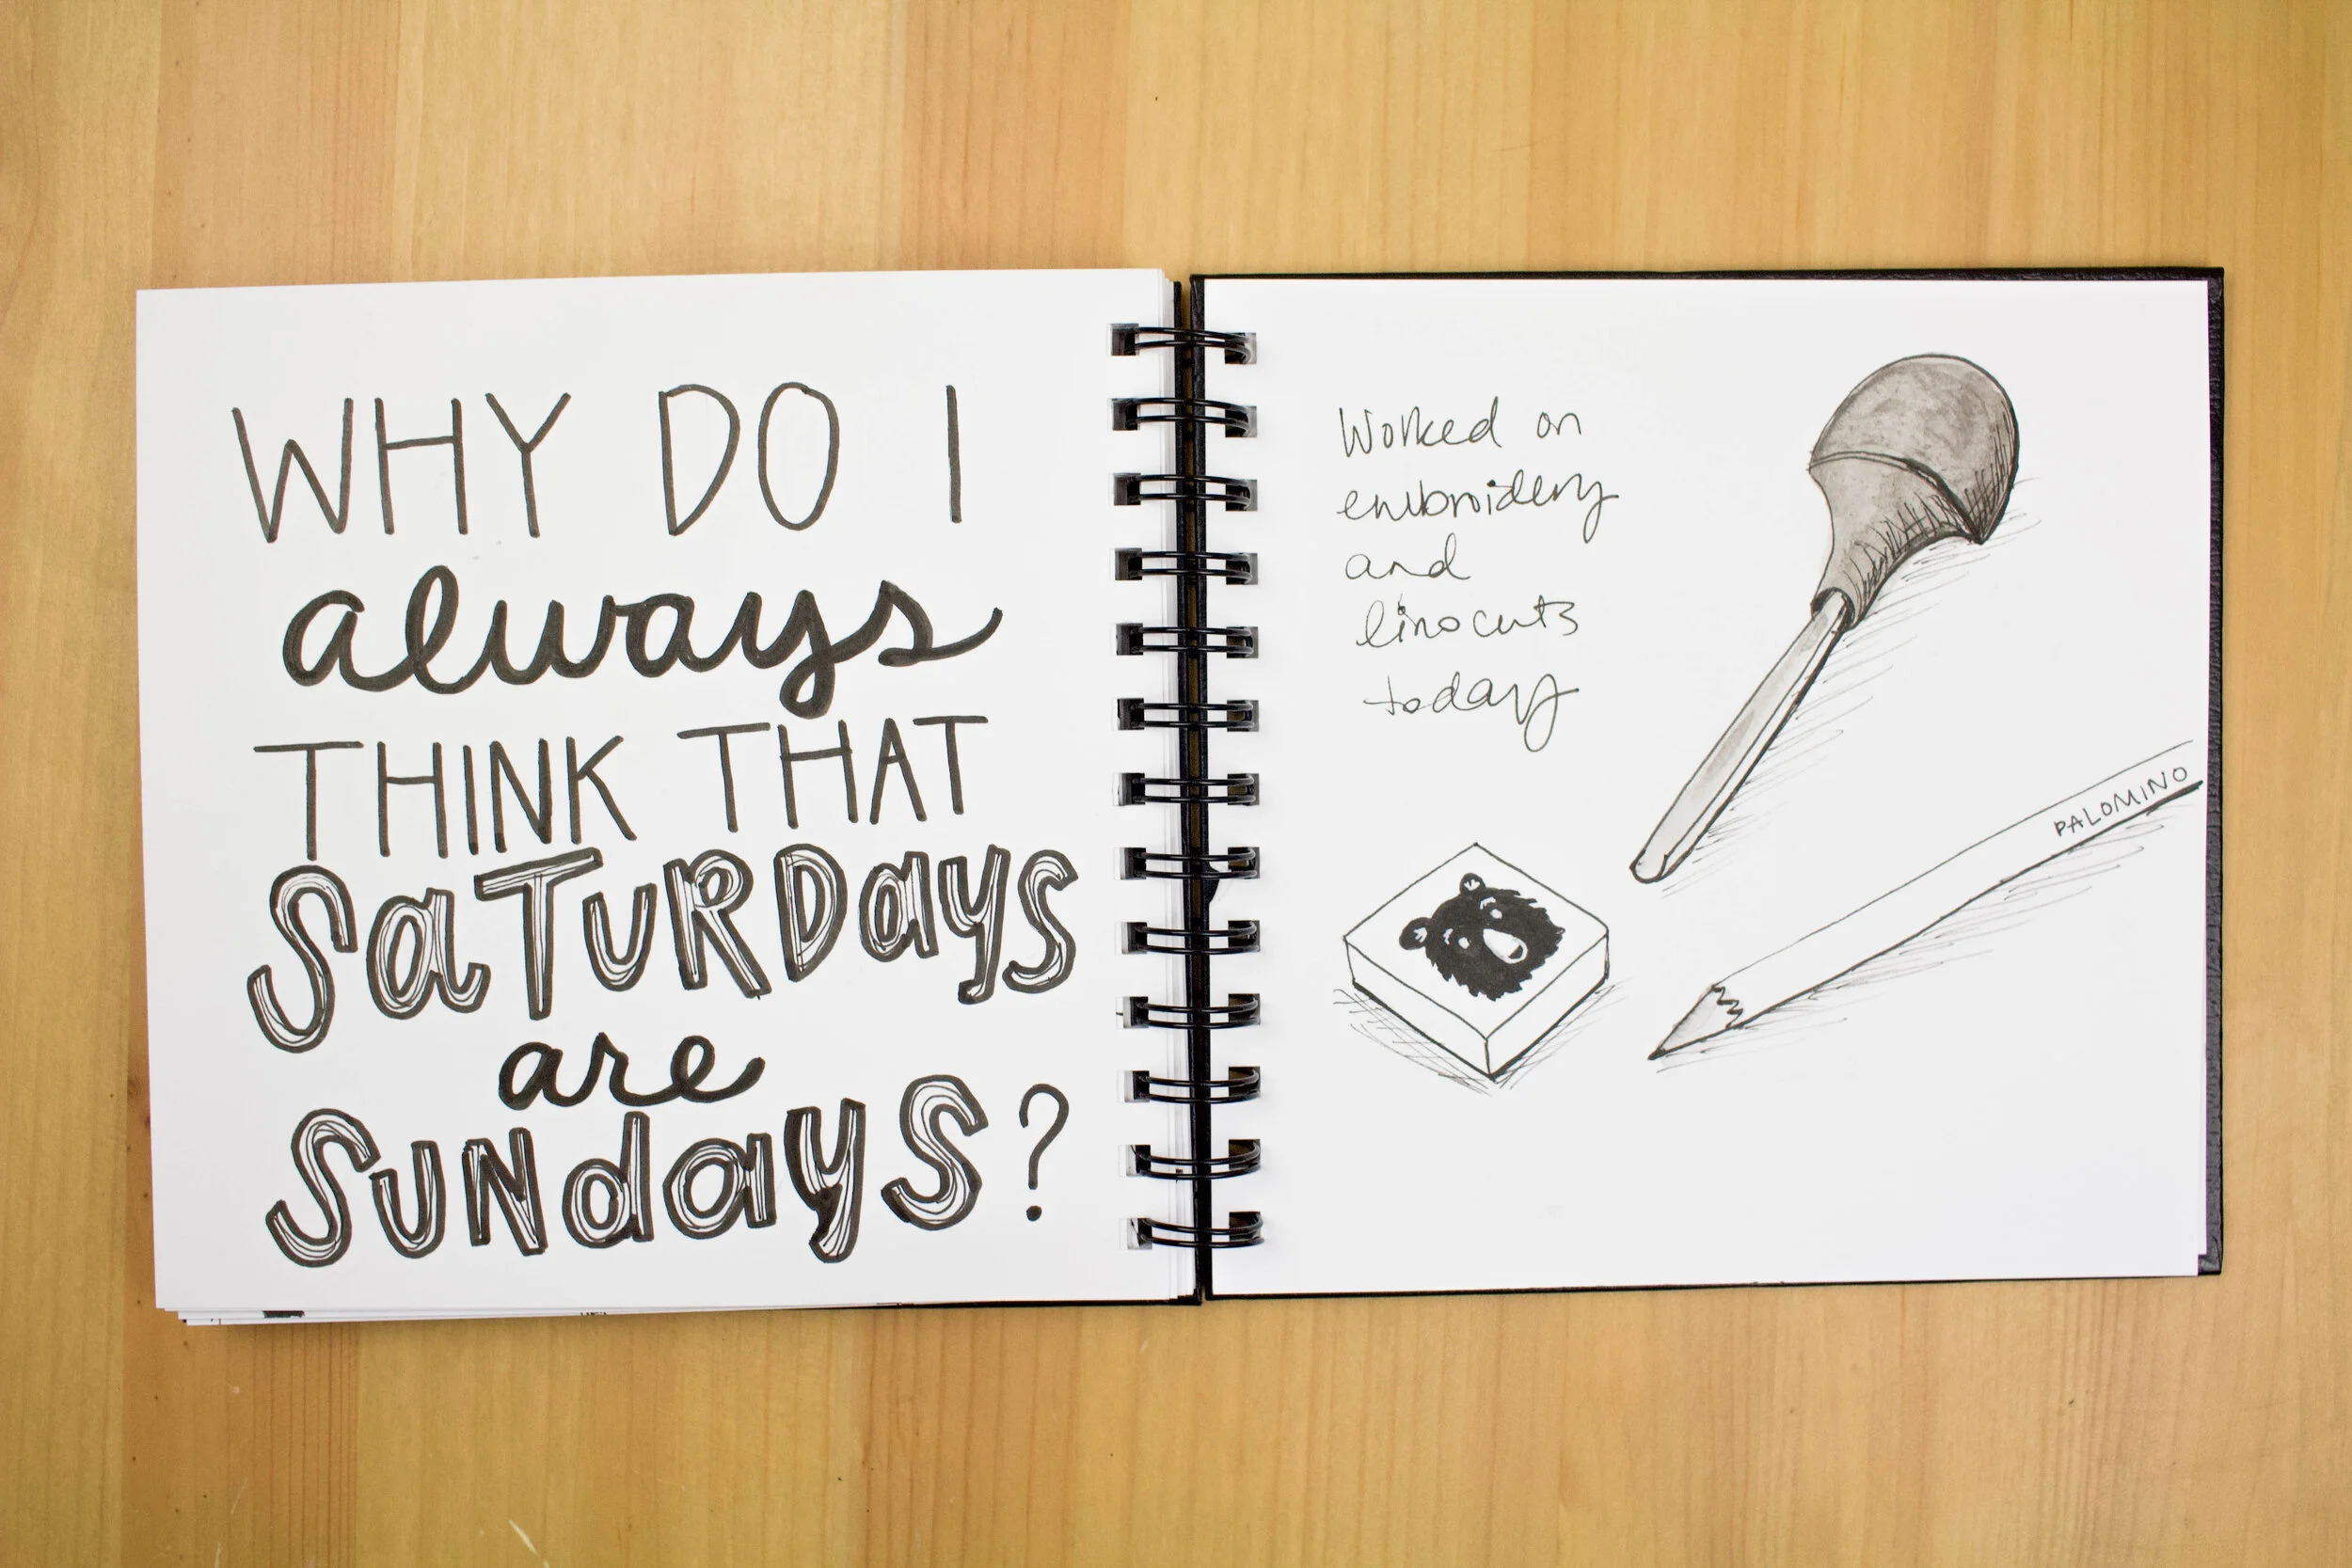 WHY DO I
always
THINK THAT
SaTURDays
are
SUNdays?
Worked on
embroidery
and
linocuts
today
PALOMINO